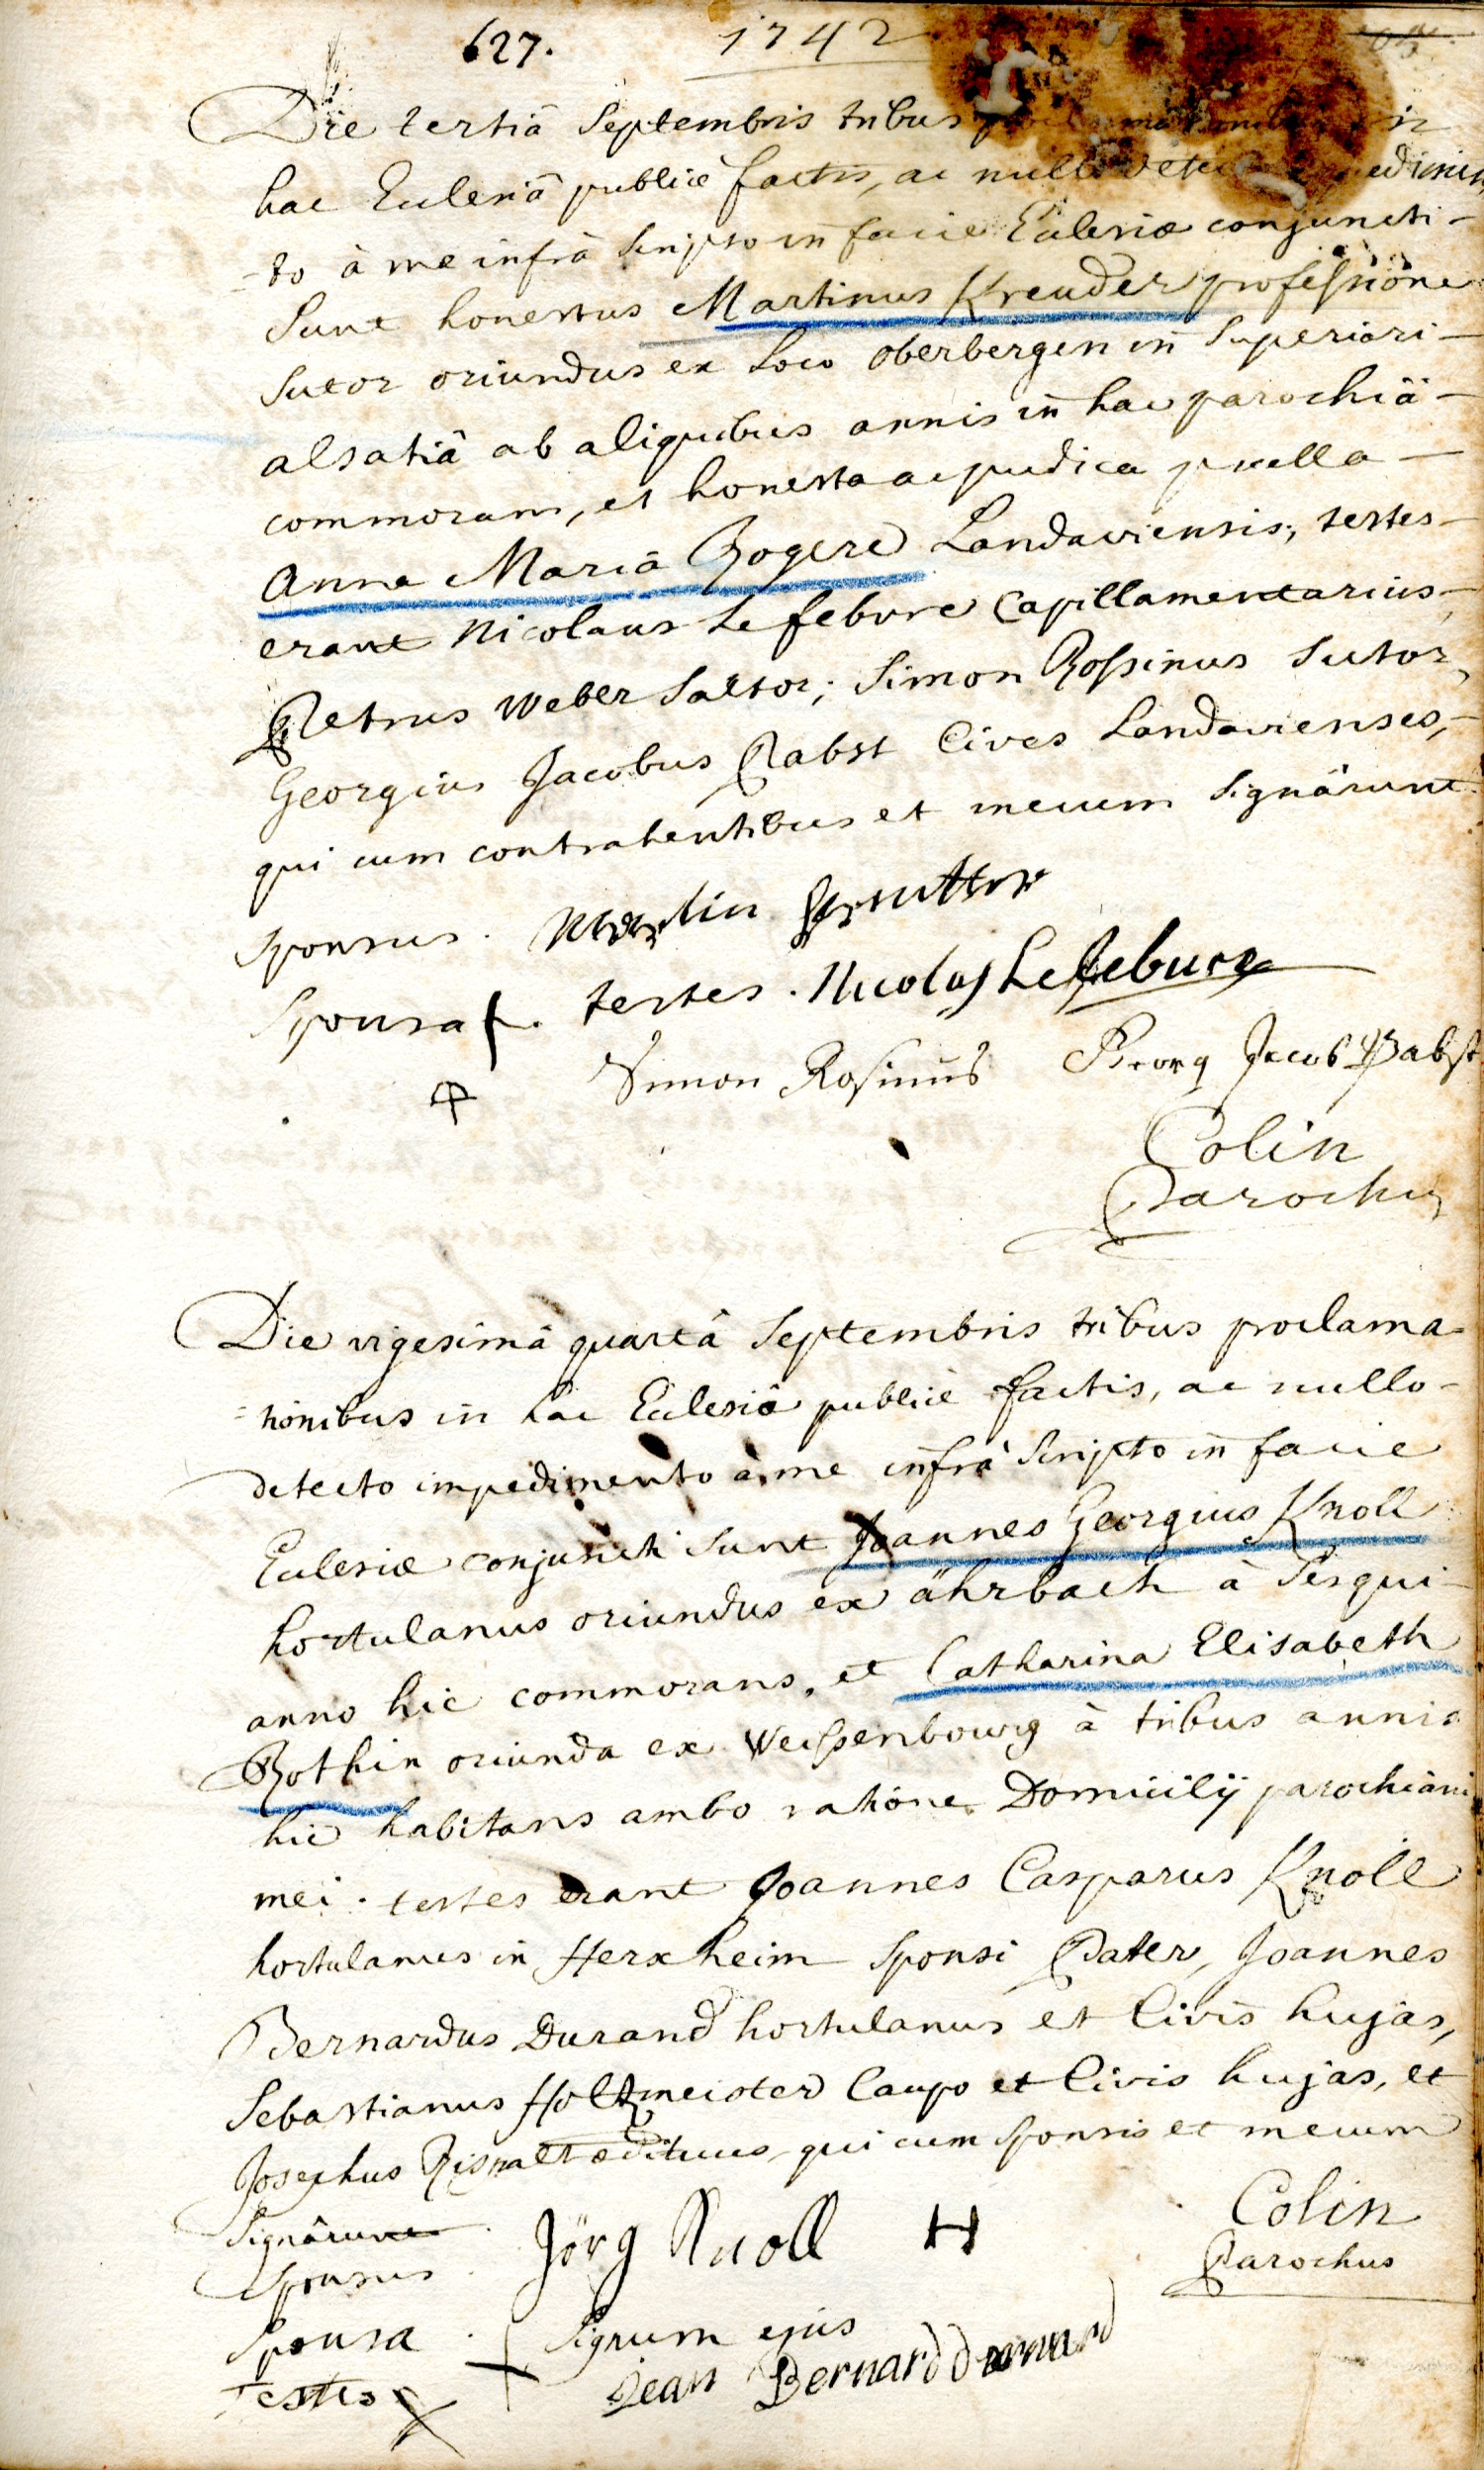 627. 1742
Die tertiâ Septembris tribus in
hac Ecclesiâ publicè factis, ac nullo
-to à me infrà scripto in facie Ecclesiæ conjuncti-
Sunt honestus Martinus Kreuder professione
Sutor oriundus ex Loco Oberbergen in Superiori-
alsatiâ ab aliquibus annis in hac parochiâ-
commorans, et honesta ac pudica puella-
Anna Maria Rogere Landaviensis, testes-
erant Nicolaus Lefebvre Capillamentarius-
Petrus Weber Saltor; Simon Rossinus Sutor,
Georgius Jacobus Pabst Cives Landavienses,-
qui cum contrahentibus et mecum Signârunt
Sponsus. Martin
Sponsa +. testes. Nicolas Lefebure
Simon Rosinus Georg Jacob Pabst
Colin
Parochus
Die vigesimâ quartâ Septembris tribus proclama-
-tionibus in hac Ecclesiâ publicè factis, ac nullo-
detecto impedimento à me infrà Scripto in facie
Ecclesiæ conjuncti Sunt Joannes Georgius Knoll
hortulanus oriundus ex ährbach à Sesqui-
anno hic commorans, et Catharina Elisabeth
Rothin oriunda ex Weissenbourg à tribus annis
hic habitans ambo ratione Domicilij parochiani
mei. testes erant Joannes Casparus Knoll
hortulanus in Herxheim Sponsi Pater, Joannes
Bernardus Durand hortulanus et Civis hujas,
Sebastianus Holtzmeister Caupo et Civis hujas, et
Josephus ædituus qui cum Sponsis et mecum
Signârunt Colin
Sponsus. Jörg Knoll H Parochus
Sponsa. + Signum ejus
Testes Jean Bernard